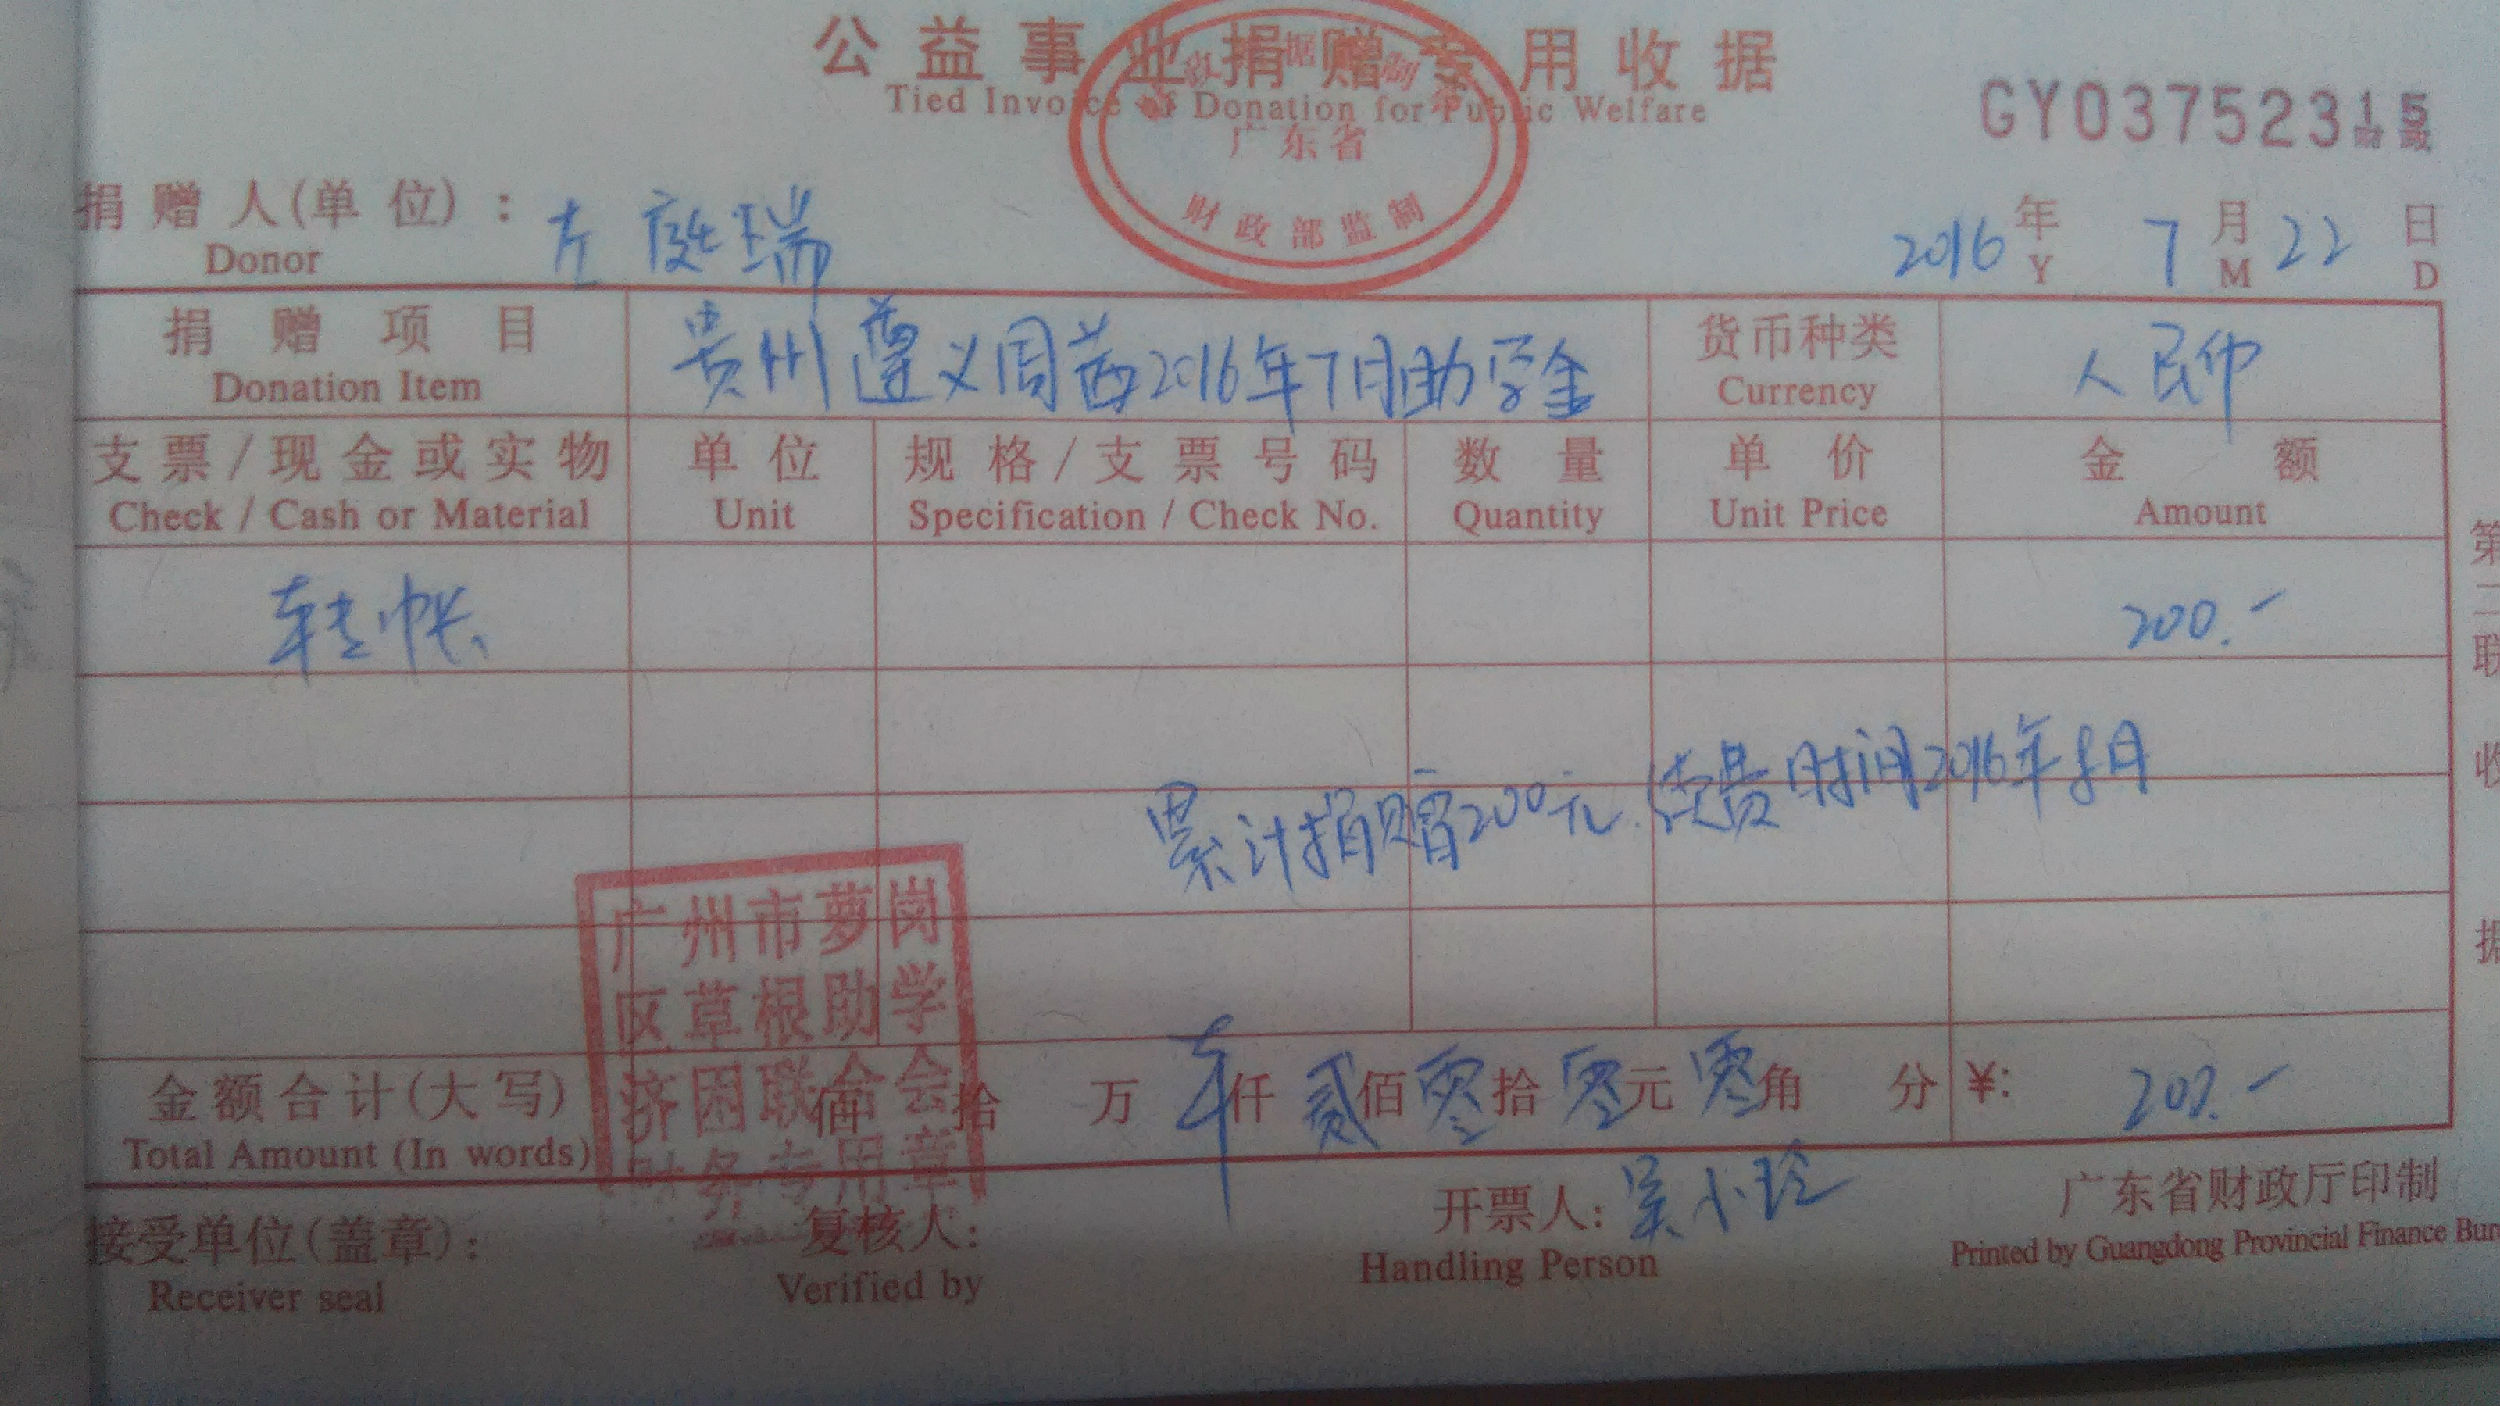 公益事业捐赠专用收据
Tied Invoice of Donation for Public Welfare
广东省
财政部监制
GY03752315
捐赠人(单位): 左庭瑞
Donor
2016年 7月 22日
Y M D
捐赠项目 贵州遵义周茜2016年7月助学金 货币种类 人民币
Donation Item Currency
支票/现金或实物 单位 规格/支票号码 数量 单价 金额
Check / Cash or Material Unit Specification / Check No. Quantity Unit Price Amount
转帐 200.-
累计捐赠200元 续费时间2016年8月
广州市萝岗
区草根助学
济困联合会
财务专用章
金额合计(大写) 佰 拾 万 仟 贰佰 零拾 零元 零角 分 ¥: 200.-
Total Amount (In words)
接受单位(盖章): 复核人: 开票人: 吴小玲 广东省财政厅印制
Receiver seal Verified by Handling Person Printed by Guangdong Provincial Finance
第二联 收据